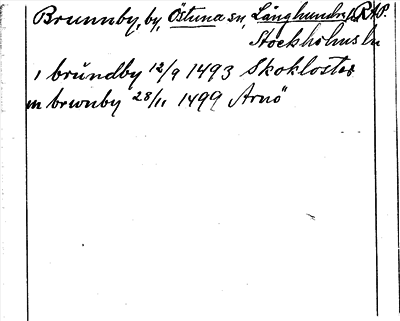 Brunnby, by, Östuna sn, Långhundra
Stockholms län
i brŭndby 12/9 1493 Skokloster
m brwnby 28/11 1499 Arnö